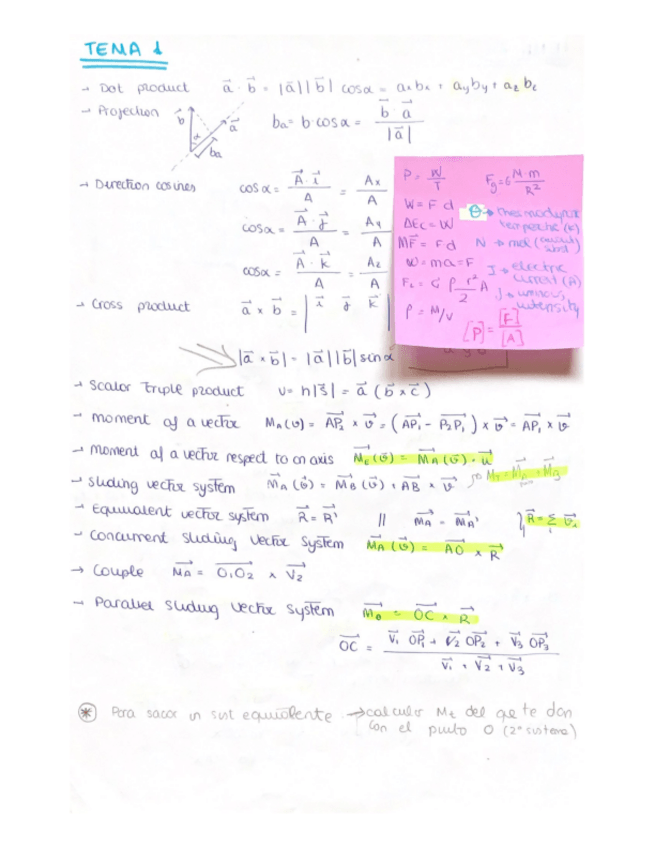 TEMA 1
→ Dot product a⃗ · b⃗ = |a⃗| |b⃗| cosα = axbx + ayby + az bz
→ Projection b⃗ a⃗ α ba ba = b·cosα = b⃗ · a⃗ / |a⃗|
→ Direction cosines cosα = A⃗ · i⃗ / A = Ax / A
cosα = A⃗ · j⃗ / A = Ay / A
cosα = A⃗ · k⃗ / A = Az / A
→ Cross product a⃗ x b⃗ = | i⃗ j⃗ k⃗ |
|a⃗ x b⃗| = |a⃗| |b⃗| sinα
P = W / T Fg = G M·m / R²
W = F d
θ → thermodynamic temperature (K)
ΔEc = W
MF = Fd N → mol (amount subst)
w = ma = F
J → electric current (A)
ρ = M/V
J → luminous intensity
[P] = [F] / [A]
→ Scalar triple product a⃗ (b⃗ x c⃗)
→ moment of a vector
→ Moment of a vector respect to an axis
→ sliding vector system M⃗A (v⃗) = M⃗B (v⃗) + A⃗B⃗ x v⃗
→ Equivalent vector system R⃗ = R⃗' // M⃗A = M⃗A'
→ Concurrent sliding vector system M⃗A (v⃗) = A⃗O⃗ x R⃗
→ Couple M⃗A = O⃗1O⃗2 x V⃗2
→ Parallel sliding vector system M⃗o = O⃗C⃗ x R⃗
O⃗C⃗ = V⃗1 O⃗P⃗1 + V⃗2 O⃗P⃗2 + V⃗3 O⃗P⃗3 / V⃗1 + V⃗2 + V⃗3
* Para sacar un sist equivalente → calcular Mt del que te dan
con el punto O (2º sistema)